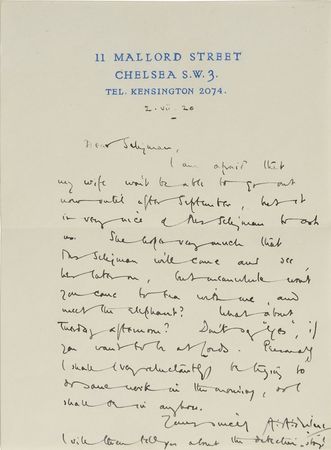 11 MALLORD STREET
CHELSEA S.W. 3.
TEL. KENSINGTON 2074.
2. vii. 20
Dear Seligman,
I am afraid that
my wife won't be able to go out
now until after September, but it
is very nice of Mrs Seligman to ask
us. She hopes very much that
Mrs Seligman will come and see
her later on, but meanwhile won't
you come to tea with me, and
meet the elephant? What about
Tuesday afternoon? Don't say "Yes", if
you want to be at Lords. Personally
I shall (very reluctantly) be trying to
do some work in the morning, so I
shall be in anyhow.
Yours sincerely A. A. Milne
I will then tell you about the detective story